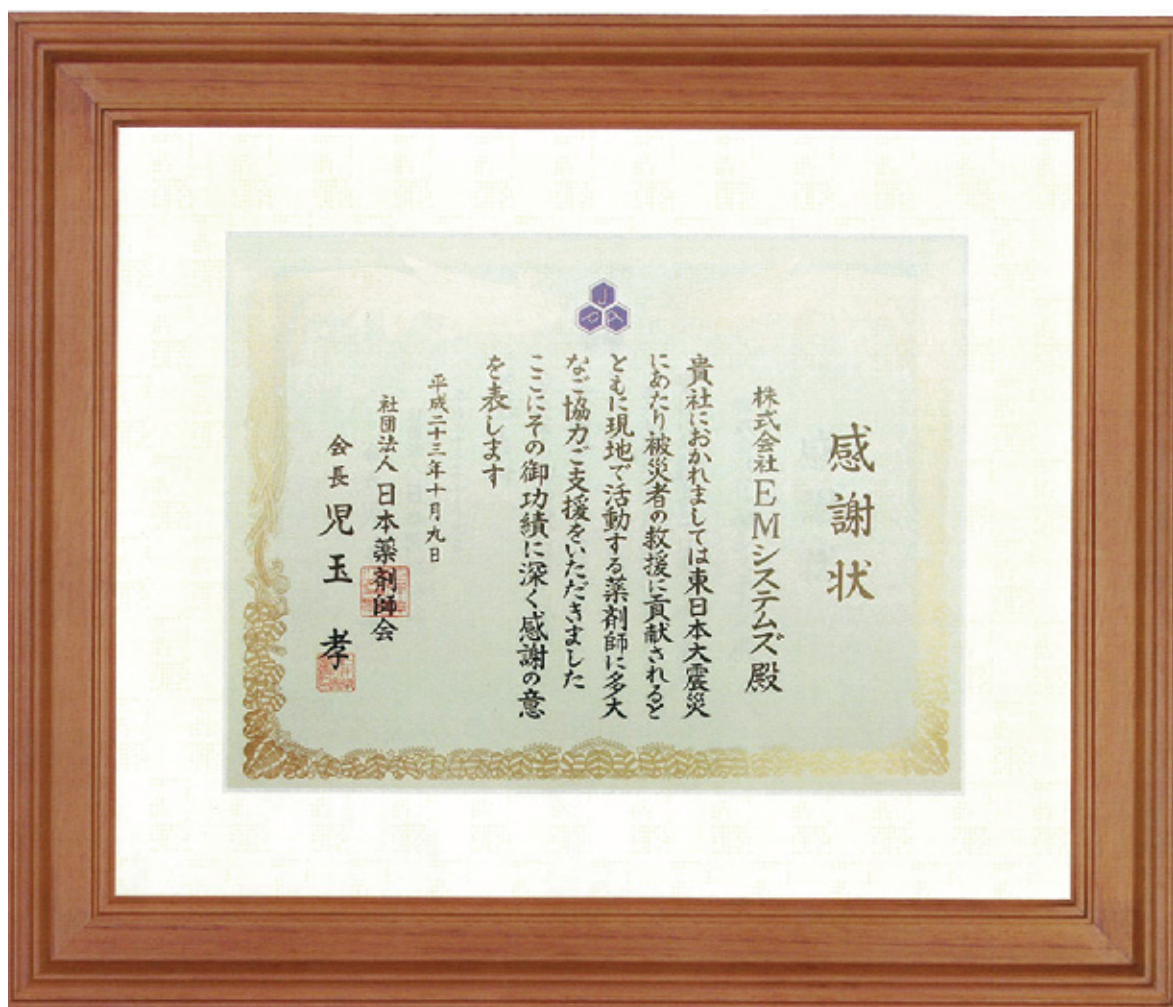 JPA
感謝状
株式会社EMシステムズ殿
貴社におかれましては東日本大震災
にあたり被災者の救援に貢献されると
ともに現地で活動する薬剤師に多大
なご協力ご支援をいただきました
ここにその御功績に深く感謝の意
を表します
平成二十三年十月九日
社団法人日本薬剤師会
会長 児玉 孝